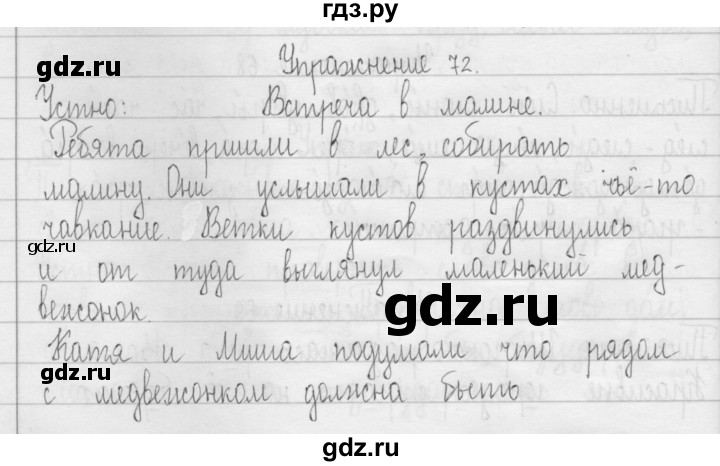 гдз.ру
gdz.ru
Упражнение 72.
Устно: Встреча в малине.
Ребята пришли в лес, собирать
малину. Они услышали в кустах чьё-то
чавканье. Ветки кустов раздвинулись
gdz.ru
и от туда выглянул маленький мед-
вежонок.
gdz.ru
Катя и Миша подумали что рядом
gdz.ru
с медвежонком должна быть
gdz.ru
gdz.ru